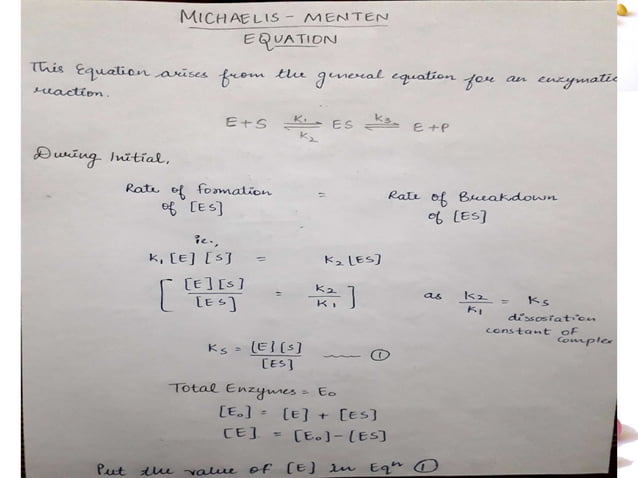 MICHAELIS - MENTEN
EQUATION
This Equation arises from the general equation for an enzymatic
reaction.
E+S ⇌ ES ⇌ E+P
K₁ K₃
K₂
During Initial,
Rate of formation = Rate of Breakdown
of [ES] of [ES]
ie.,
K₁ [E] [S] = K₂ [ES]
[ [E][S] / [ES] = K₂ / K₁ ] as K₂ / K₁ = Ks
dissosiation
constant of
complex
Ks = [E][S] / [ES] —— ①
Total Enzymes = E₀
[E₀] = [E] + [ES]
[E] = [E₀]-[ES]
Put the value of [E] in Eqⁿ ①